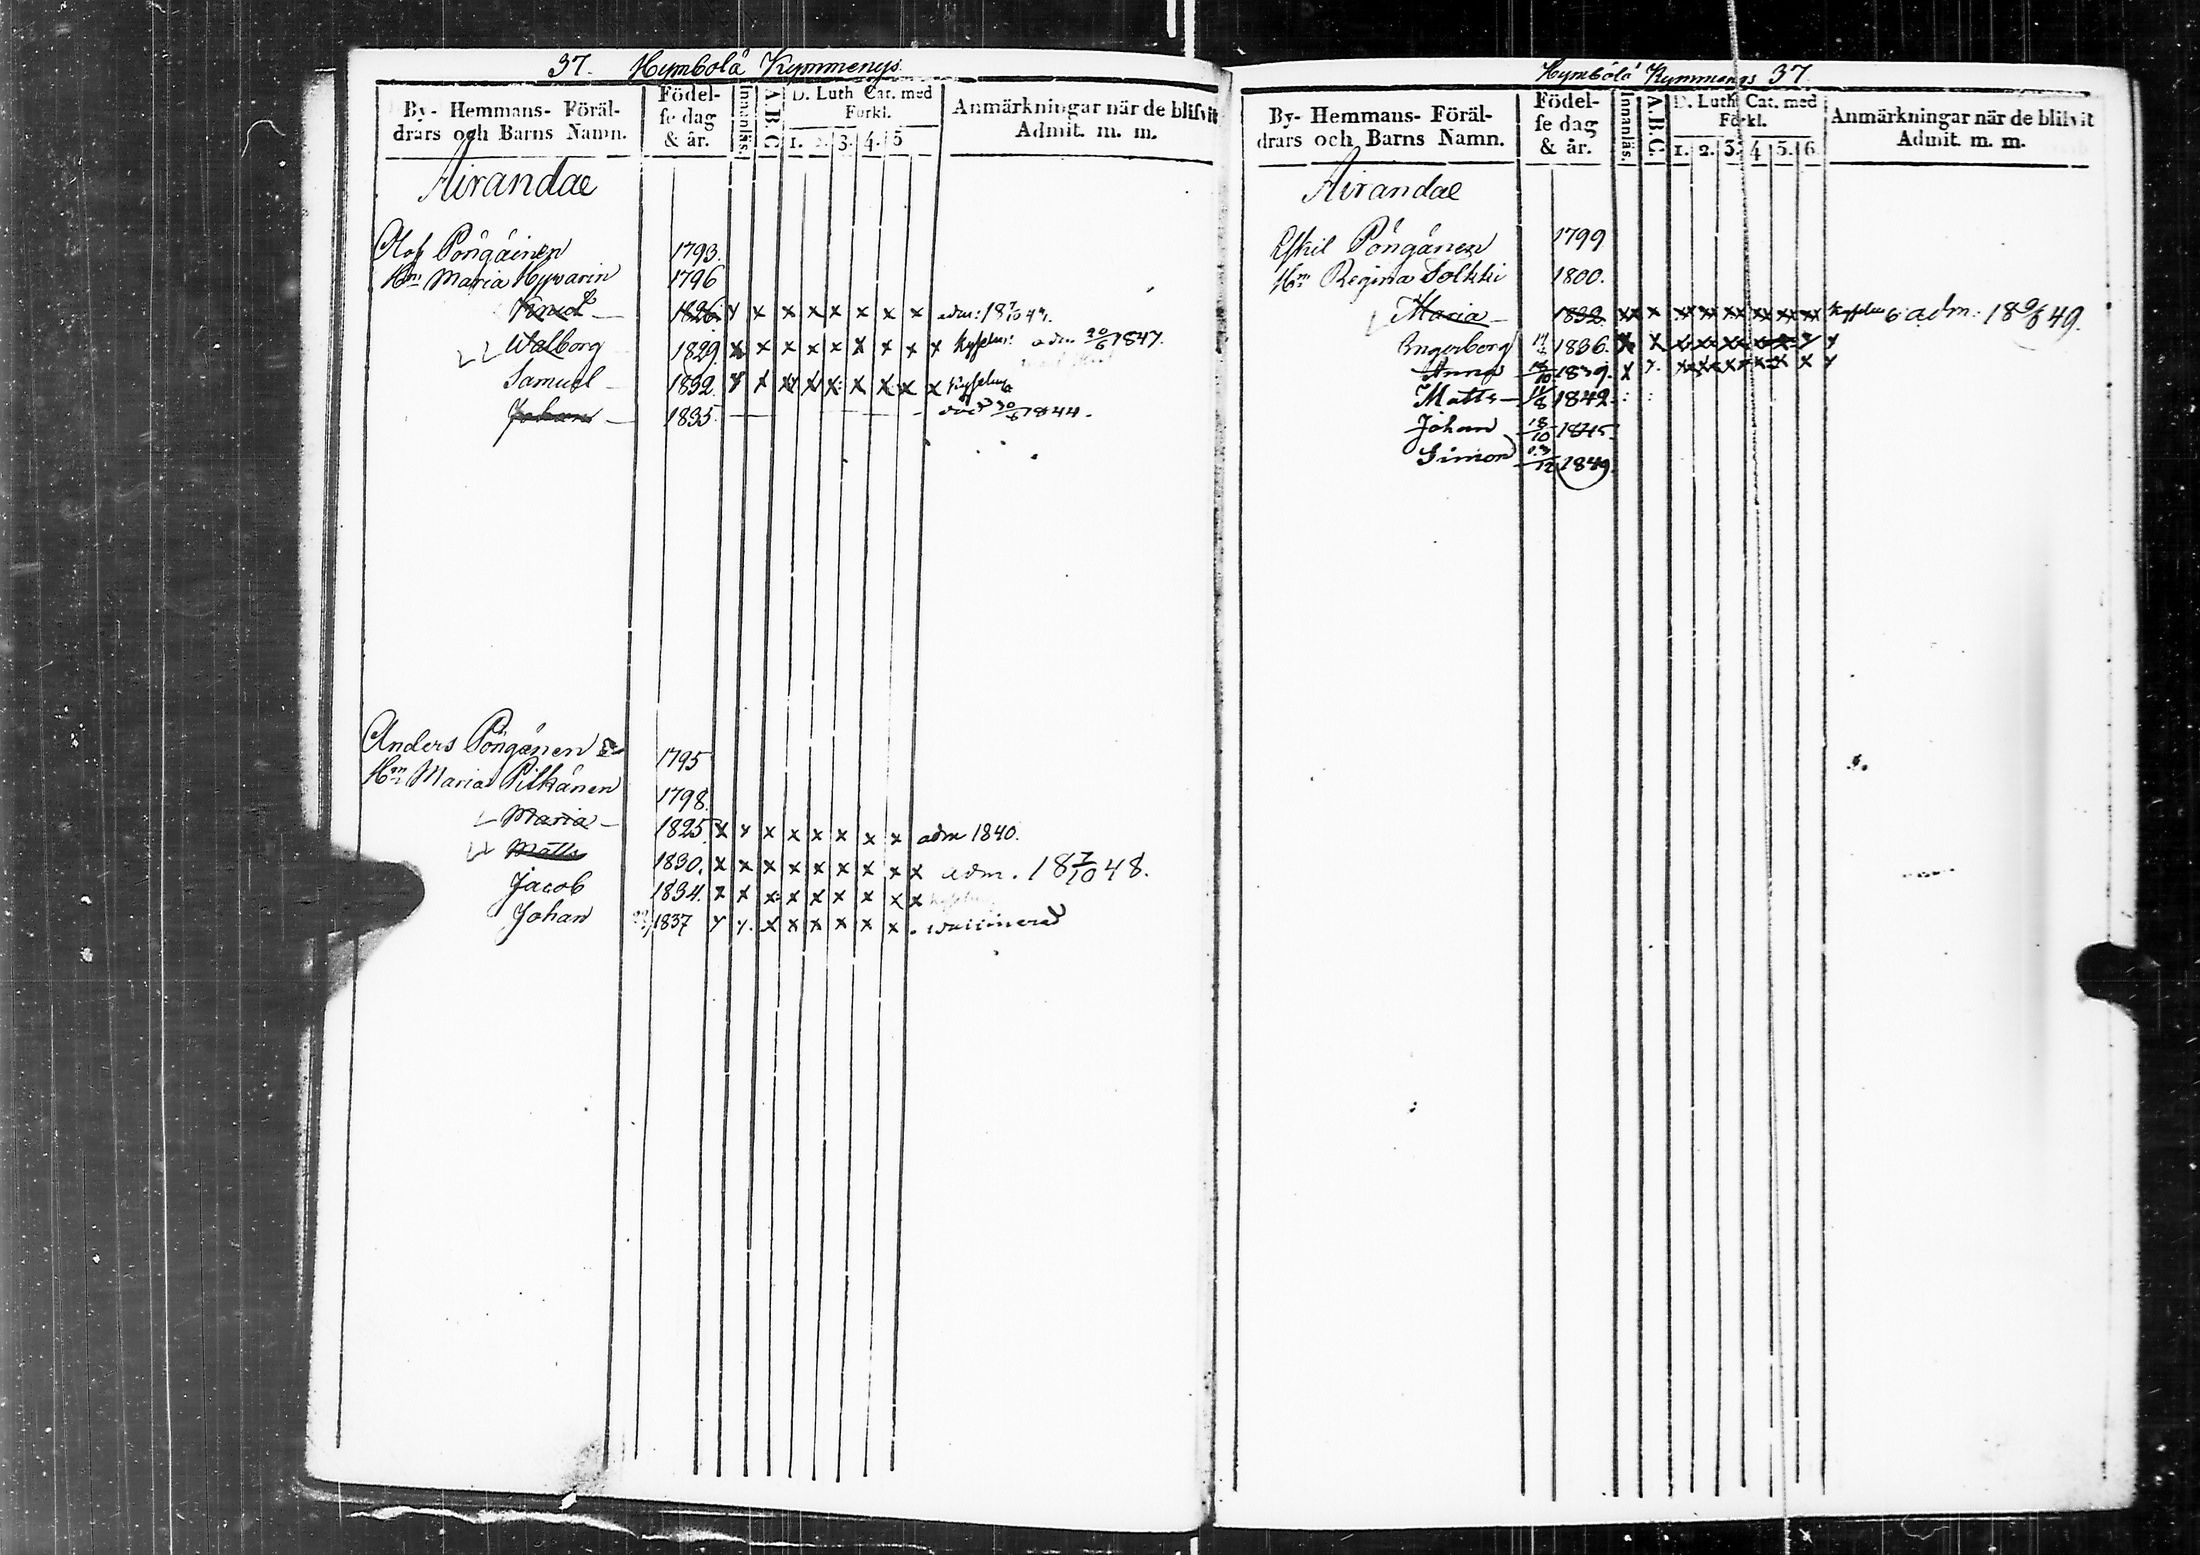 37. Hymbolä Kymmenys.
By- Hemmans- Föräl-
drars och Barns Namn.
Födel-
se dag
& år.
Innanläs.
A.B.C.
D. Luth Cat. med
Forkl.
1. 2. 3. 4. 5
Anmärkningar när de blifvit
Admit. m. m.
Airandae
Olof Pöngäinen 1793.
Hm Maria Hyvärin 1796
Knut — 1826. x x x x x x x x adm:
Walborg 1829. x x x x x x x x x adm 30/6 1847.
Samuel — 1832. x x x x x x x x x
Johan — 1835. — död 30/6 1844.
Anders Pöngänen 1795
Hm Maria Pitkänen 1798.
Maria — 1825 x x x x x x x x adm 1840.
Matts 1830. x x x x x x x x x adm. 18 7/10 48.
Jacob 1834. x x x x x x x x x
Johan 1837 x x x x x x x x
Hymbölä Kymmenys 37.
By- Hemmans- Föräl-
drars och Barns Namn.
Födel-
se dag
& år.
Innanläs.
A.B.C.
D. Luth Cat. med
Forkl.
1. 2. 3. 4 5. 6.
Anmärkningar när de blifvit
Admit. m. m.
Airandae
Eskil Pöngänen 1799
Hm Regina Solkki 1800.
Maria — 1832. xx x xx xx xx xx xx xx adm: 49.
Engerborg 1836. x x x x x x x x x
Anna 1839. x x x x x x x x x
Matts — 1842.
Johan 18/10 1845.
Simon 1849.